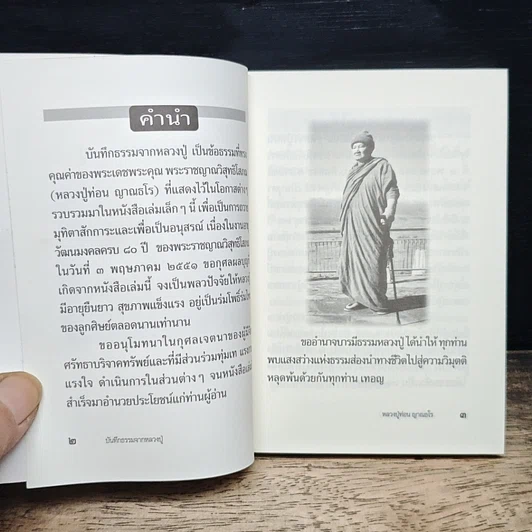 คำนำ
บันทึกธรรมจากหลวงปู่ เป็นข้อธรรมที่ทรง
คุณค่าของพระเดชพระคุณ พระราชญาณวิสุทธิโสภณ
(หลวงปู่ท่อน ญาณธโร) ที่แสดงไว้ในโอกาสต่างๆ
รวบรวมมาในหนังสือเล่มเล็กๆ นี้ เพื่อเป็นการถวาย
มุทิตาสักการะและเพื่อเป็นอนุสรณ์ เนื่องในงานอายุ
วัฒนมงคลครบ ๘๐ ปี ของพระราชญาณวิสุทธิโสภณ
ในวันที่ ๓ พฤษภาคม ๒๕๕๑ ขอกุศลผลบุญ
เกิดจากหนังสือเล่มนี้ จงเป็นพลวปัจจัยให้หลวง
มีอายุยืนยาว สุขภาพแข็งแรง อยู่เป็นร่มโพธิ์ร่ม
ของลูกศิษย์ตลอดนานเท่านาน
ขออนุโมทนาในกุศลเจตนาของผู้มี
ศรัทธาบริจาคทรัพย์และที่มีส่วนร่วมทุ่มเท แรงกาย
แรงใจ ดำเนินการในส่วนต่างๆ จนหนังสือ
สำเร็จมาอำนวยประโยชน์แก่ท่านผู้อ่าน
๒ บันทึกธรรมจากหลวงปู่
ขออำนาจบารมีธรรมหลวงปู่ ได้นำให้ ทุกท่าน
พบแสงสว่างแห่งธรรมส่องนำทางชีวิตไปสู่ความวิมุตติ
หลุดพ้นด้วยกันทุกท่าน เทอญ
หลวงปู่ท่อน ญาณธโร ๓